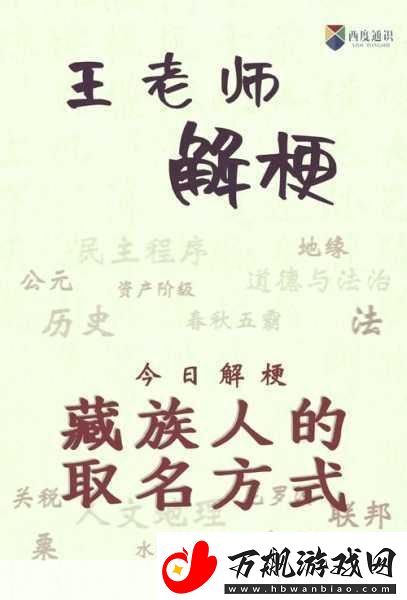 西度通识
XIDU TONGSHI
王老师
解梗
民主程序 地缘
公元 资产阶级 道德与法治
历史 春秋五霸 法
今日解梗
藏族人的
取名方式
关税 人文地理 联邦
粟 水
万飙游戏网
www.hbwanbiao.com